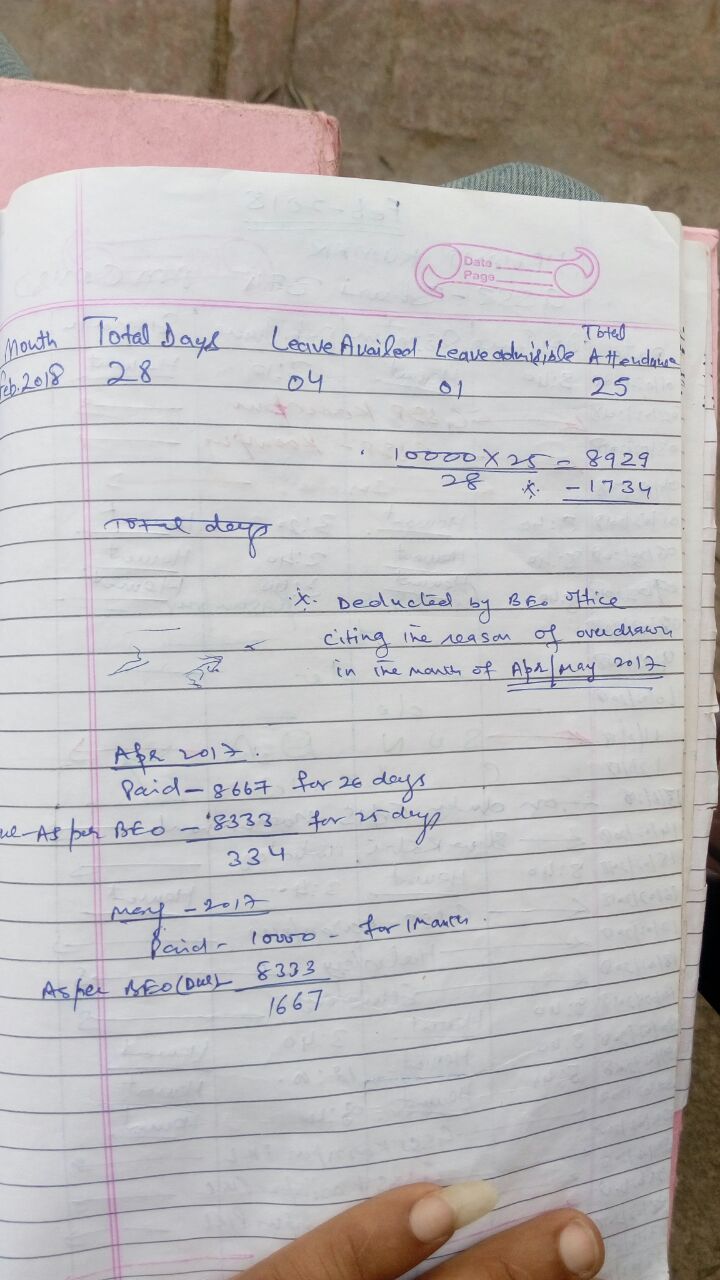 Date
Page
Month Total Days Leave Availed Leave admisible Total Attendance
Feb. 2018 28 04 01 25
10000 X 25 = 8929
28 * - 1734
Total days
* Deducted by BEO office
citing the reason of overdrawn
in the month of Apr/May 2017
Apr 2017.
Paid - 8667 for 26 days
As per BEO - 8333 for 25 days
334
May - 2017
Paid - 10000 - for 1 Month.
As per BEO (Due) 8333
1667